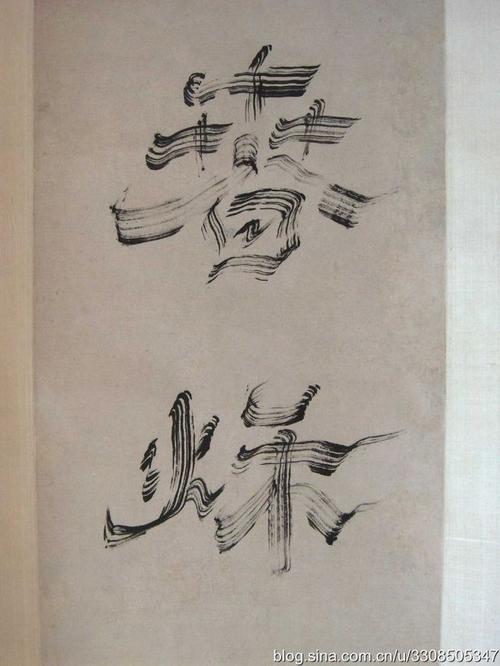 春
秌
blog.sina.com.cn/u/3308505347